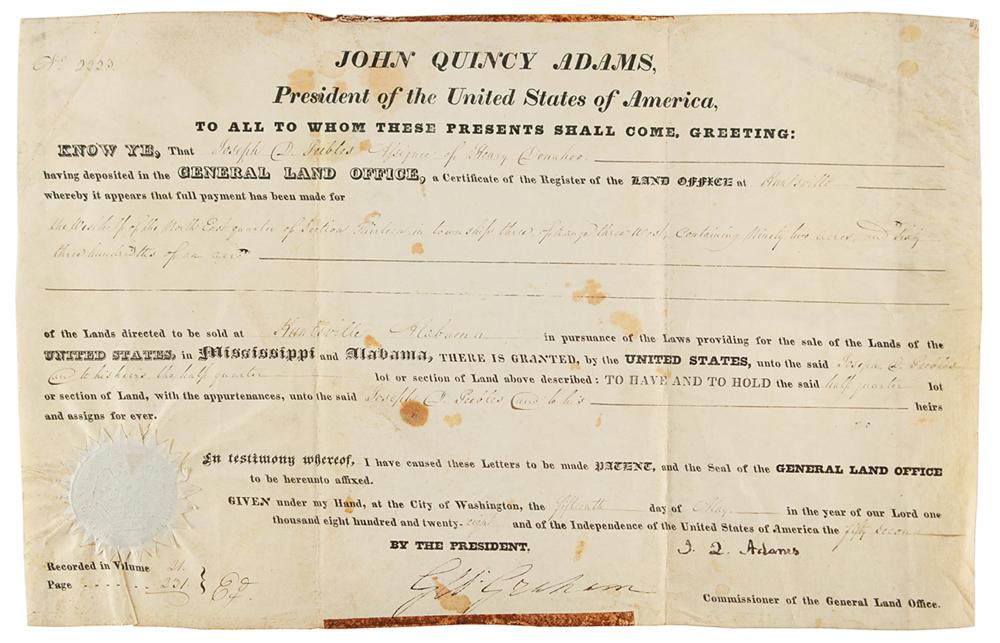 No 2223
JOHN QUINCY ADAMS,
President of the United States of America,
TO ALL TO WHOM THESE PRESENTS SHALL COME, GREETING:
KNOW YE, That Joseph D. Peebles Assignee of Henry Donahoo
having deposited in the GENERAL LAND OFFICE, a Certificate of the Register of the LAND OFFICE at Huntsville
whereby it appears that full payment has been made for
the West half of the North East quarter of Section Thirteen, in township three, of range three West, Containing Ninety two acres, and Sixty
three hundredths of an acre
of the Lands directed to be sold at Huntsville Alabama in pursuance of the Laws providing for the sale of the Lands of the
UNITED STATES, in Mississippi and Alabama, THERE IS GRANTED, by the UNITED STATES, unto the said Joseph D. Peebles
and to his heirs, the half quarter lot or section of Land above described: TO HAVE AND TO HOLD the said half quarter lot
or section of Land, with the appurtenances, unto the said Joseph D. Peebles and to his heirs
and assigns for ever.
In testimony whereof, I have caused these Letters to be made PATENT, and the Seal of the GENERAL LAND OFFICE
to be hereunto affixed.
GIVEN under my Hand, at the City of Washington, the fifteenth day of May in the year of our Lord one
thousand eight hundred and twenty-eight and of the Independence of the United States of America the fifty second
BY THE PRESIDENT, J. Q. Adams
Geo: Graham
Commissioner of the General Land Office.
Recorded in Volume 21.
Page 231